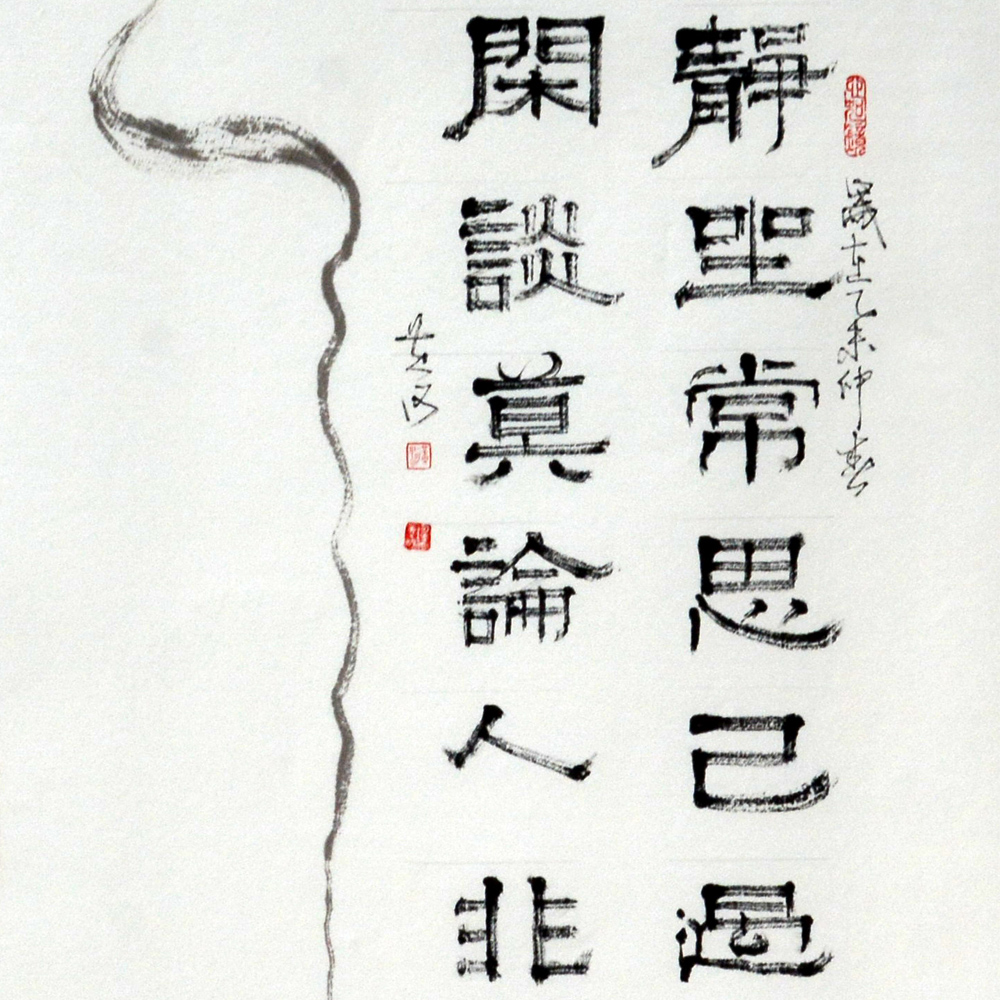 歲在乙未仲春
靜坐常思己過
閑談莫論人非